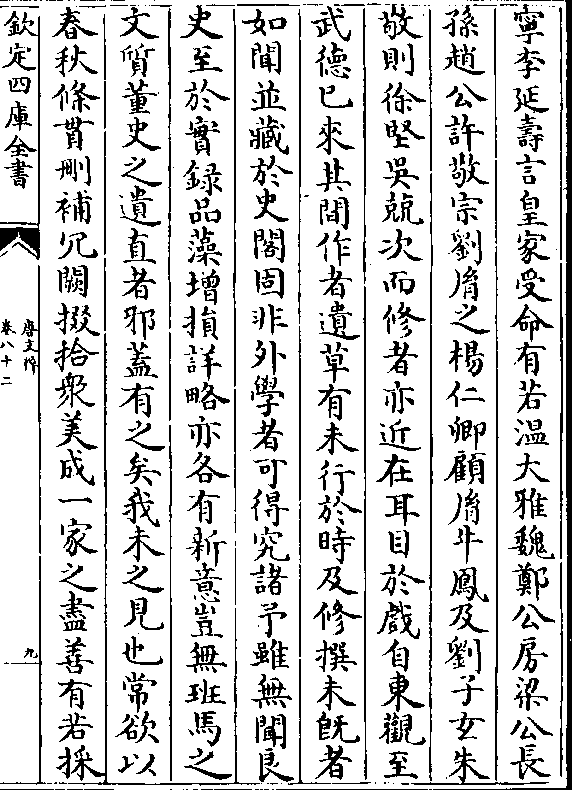 寧李延壽言皇家受命有若溫大雅魏鄭公房梁公長
孫趙公許敬宗劉𦙍之楊仁卿顧𦙍牛鳳及劉子玄朱
敬則徐堅吳兢次而修者亦近在耳目於戲自東觀至
武德已來其間作者遺草有未行於時及修撰未旣者
如聞並藏於史閣固非外學者可得究諸予雖無聞良
史至於實錄品藻增損詳略亦各有新意豈無班馬之
文質董史之遺直者邪蓋有之矣我未之見也常欲以
春秋條貫刪補冗闕掇拾衆美成一家之盡善有若採
欽定四庫全書
唐文粹
卷八十二
九